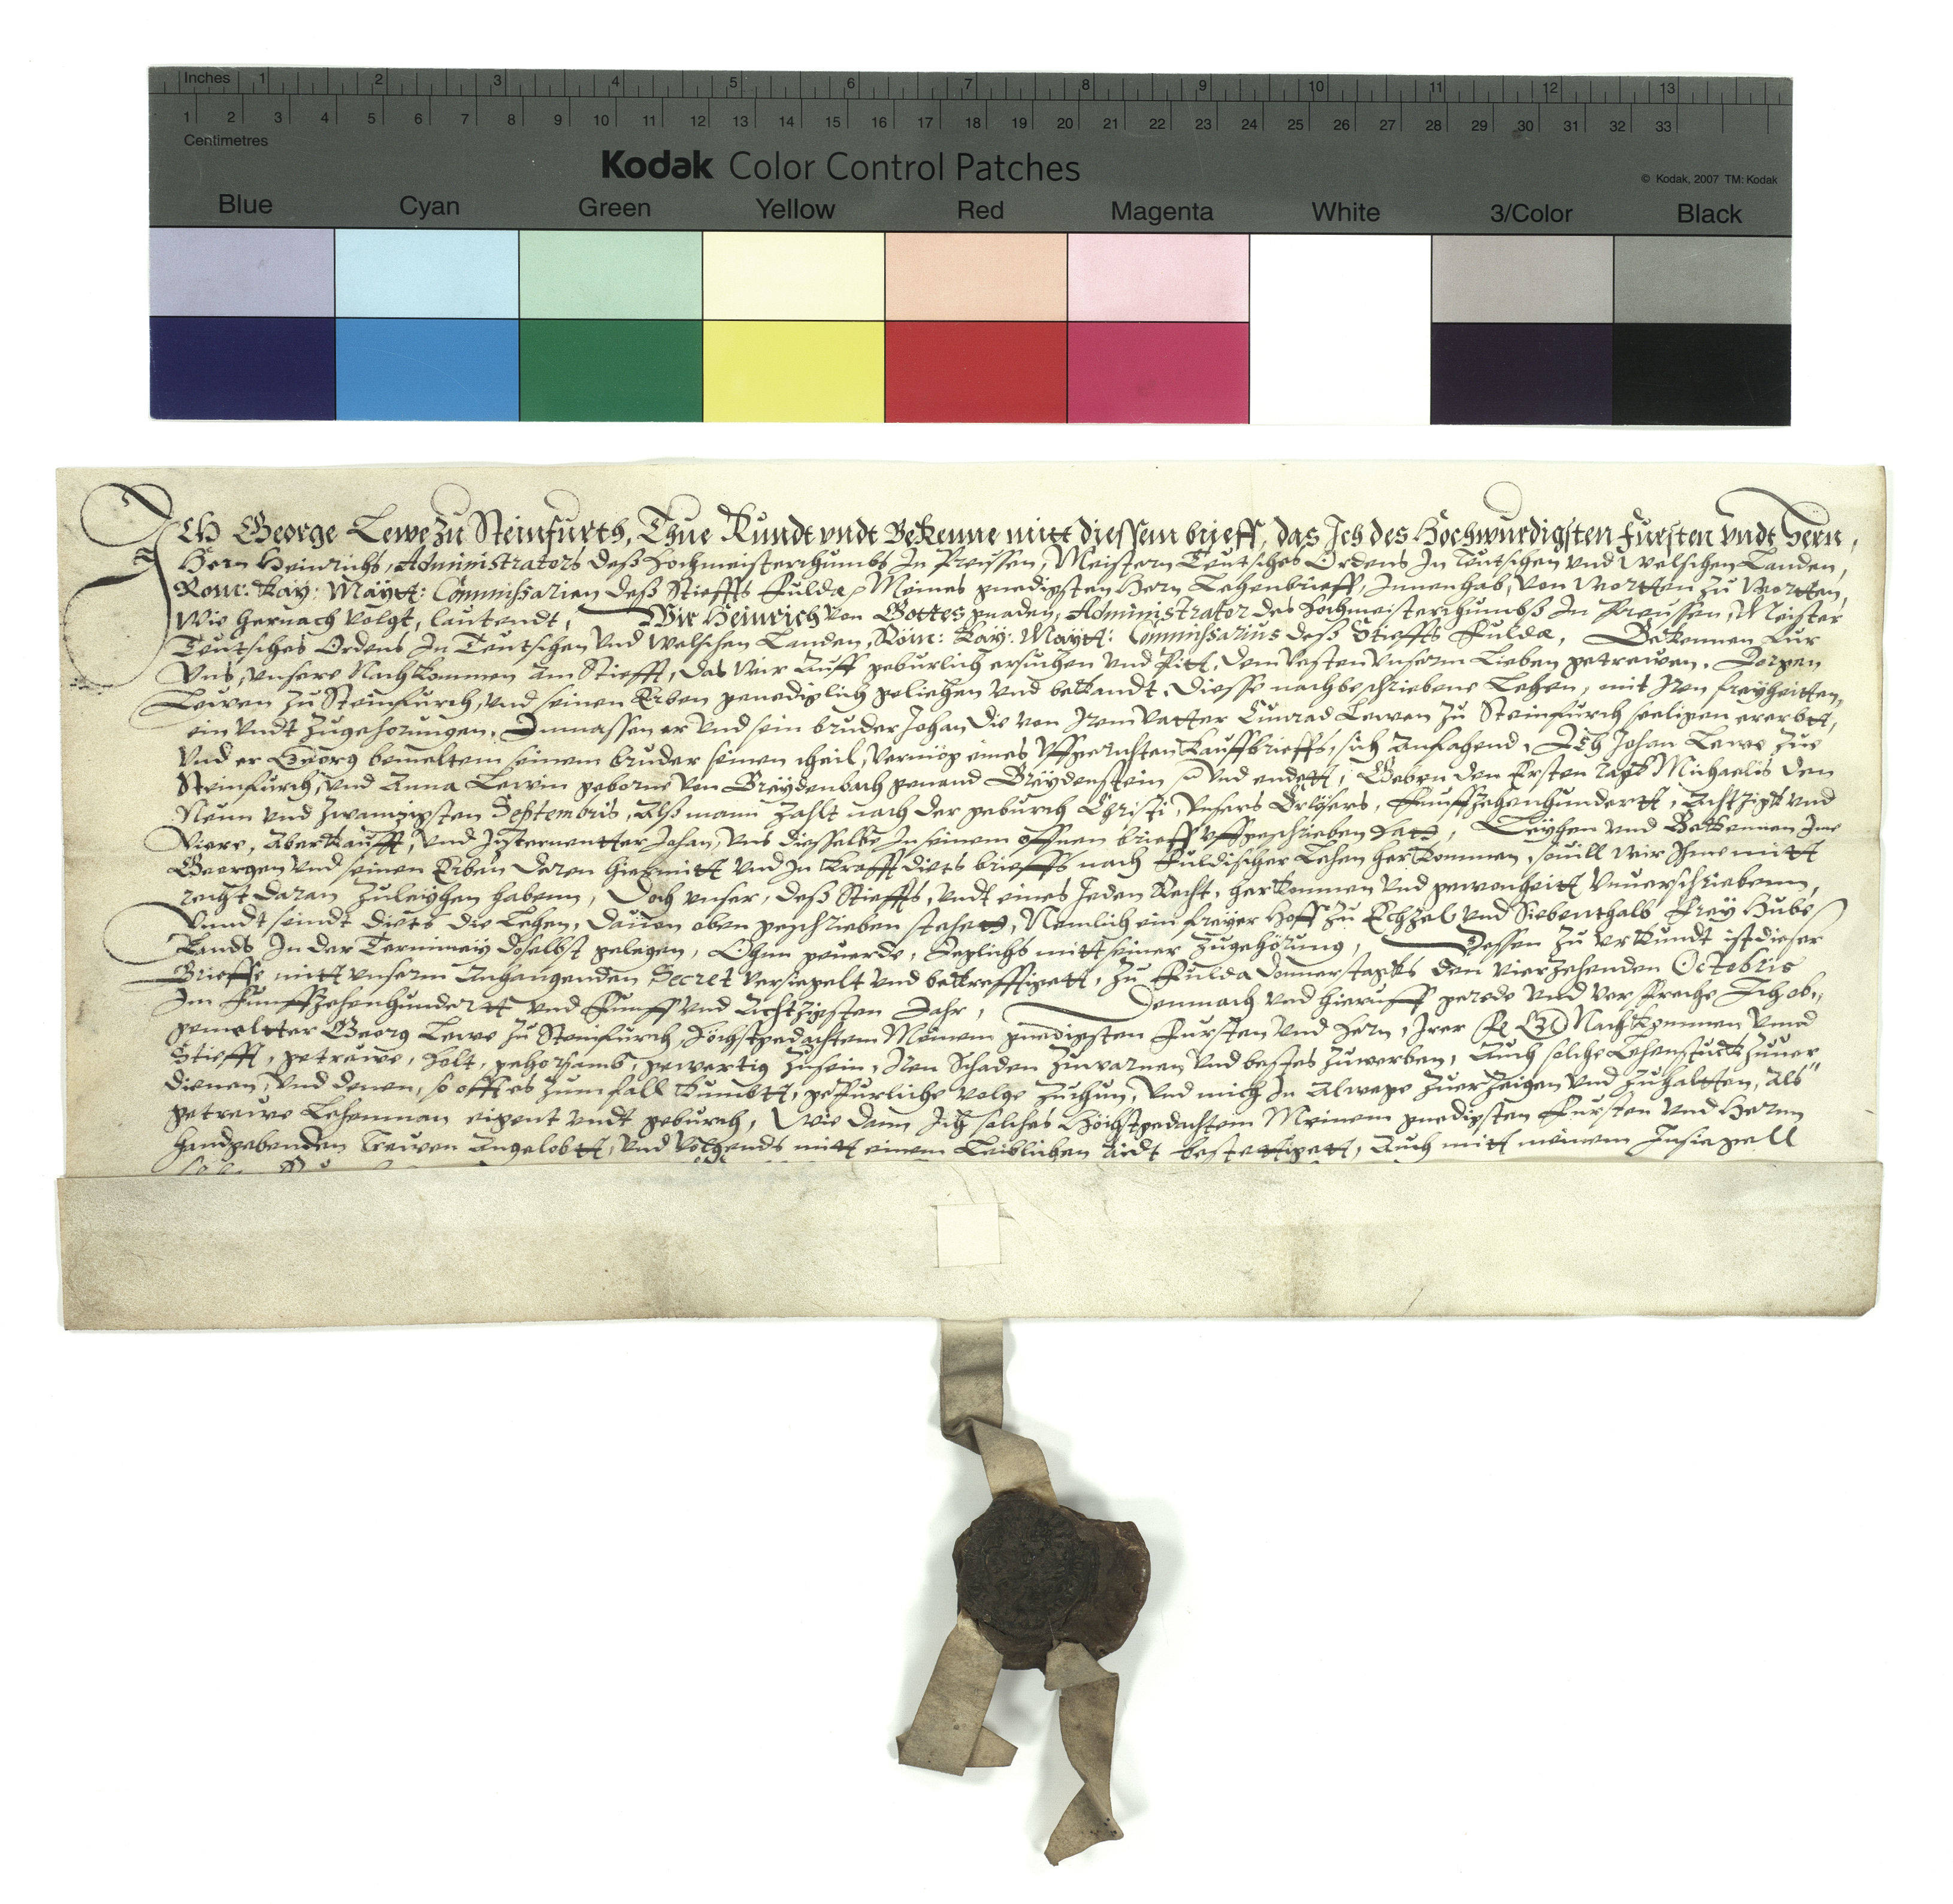 Inches 1 2 3 4 5 6 7 8 9 10 11 12 13
1 2 3 4 5 6 7 8 9 10 11 12 13 14 15 16 17 18 19 20 21 22 23 24 25 26 27 28 29 30 31 32 33
Centimetres
Kodak Color Control Patches
© Kodak, 2007 TM: Kodak
Blue Cyan Green Yellow Red Magenta White 3/Color Black
Ich George Lewe zu Steinfurth, Thue Kundt vndt Bekenne mitt diessem brieff, das Ich des Hochwurdigsten Fursten vndt Hern,
Hern Heinrichs, Administrators deß Hochmeisterthumbs In Preussen, Meistern Teutsches Ordens In Teutschen vnd Welschen Landen,
Rom: Kay: Maytt: Commissarien deß Stieffts Fulda, Meines gnedigsten Hern Lehenbrieff, Innenhab, von wortten zu wortten,
Wie hernach volgt, lautendt, Wir Heinrich von Gottes gnaden, Administrator des Hochmeisterthumbß In Preussen, Meister
Teutsches Ordens In Teutschen vnd Welschen Landen, Rom: Kay: Maytt: Commissarius deß Stieffts Fulda, Bekennen Fur
Vns, vnsere Nachkommen am Stiefft, das wir auff geburlich ersuchen vnd Pitt, dem Vesten vnserm Lieben getrewen, Jorgen
Lewen zu Steinfurth, vnd seinen Erben genediglich geliehen vnd bekandt, diesse nachbeschriebene Lehen, mit Iren freyheitten,
ein vndt Zugehorungen, Inmassen er vnd sein bruder Johan die von Irem vatter Cunrad Lewen zu Steinfurth seeligen ererbtt,
Vnd er Georg bemeltem seinem bruder seinen theil, vermög eines vffgerichten Kauffbrieffs, sich anfahend, Ich Johan Lewe zue
Steinfurth, vnd Anna Lewin geborne von Breydenbach genand Breydenstein vnd endett, Geben den Ersten tagk Michaelis den
Neun vnd zwanzigsten Septembris, Alß mann zahlt nach der geburth Christi, vnsers Erlösers, Funffzehenhundertt, Achtzigk vnd
Viere, Aberkaufft, vnd Jhön Johan, vns diesselbe In seinem offnen brieff vffgeschrieben hatt, Leyhen vnd Bekennen Ime
Georgen vnd seinen Erben deren hiermitt vnd In krafft diets brieffs nach Fuldischer Lehen herkommen, souill wir Ihme mitt
recht daran zuleyhen habenn, Doch vnser, deß Stieffts, vndt eines Jeden Recht, herkommen vnd gewonheitt vnuerschriebenn,
Vnndt seindt diets die Lehen, dauon oben geschrieben stehett, Nemlich ein freyer Hoff zu Echzel vnd Siebenthalb frey Hube
Lands In der Terminey doselbst gelegen, Ohnn geuerde, Jeglichs mitt seiner Zugehörung, Dessen zu vrkundt ist dieser
Brieffe mitt vnserm Anhangenden Secret versiegelt vnd bekrefftigett, zu Fulda donnerstagks den vierzehenden Octobris
Im Funffzehenhundertt vnd Funff vnd Achtzigsten Jahr, Demnach vnd hieruff gerede vnd versPreche Ich ob-
gemeltter Georg Lewe zu Steinfurth, Höchstgedachtem Meinem gnedigsten Fursten vnd Hern, Irer Nachkommen vnnd
Stiefft, getrewe, Holt, gehorsamb, gewertig zusein, Iren Schaden zuwarnen vnd bestes zuwerben, Auch solche Lehenstuck zuuer
dienen, vnd denen, so offt es zum fall kumbtt, gepurliche volge zuthun, vnd mich In Alwege zuerzeigen vnd zuhaltten, als
getrewe Lehenman eigent vndt geburth, Wie dann Ich solches Höchstgedachtem Meinem gnedigsten Fursten vnd Herrn
handgebenden Trewen Angelobtt, vnd Volgends mitt einem Leiblichen Aidt bestettigett, Auch mitt meinem Insiegell